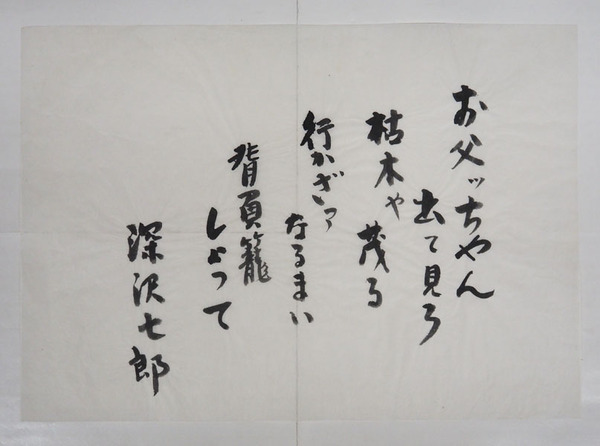 お父ッちやん
出て見ろ
枯木や茂る
行かざァ
なるまい
背負籠
しょって
深沢七郎